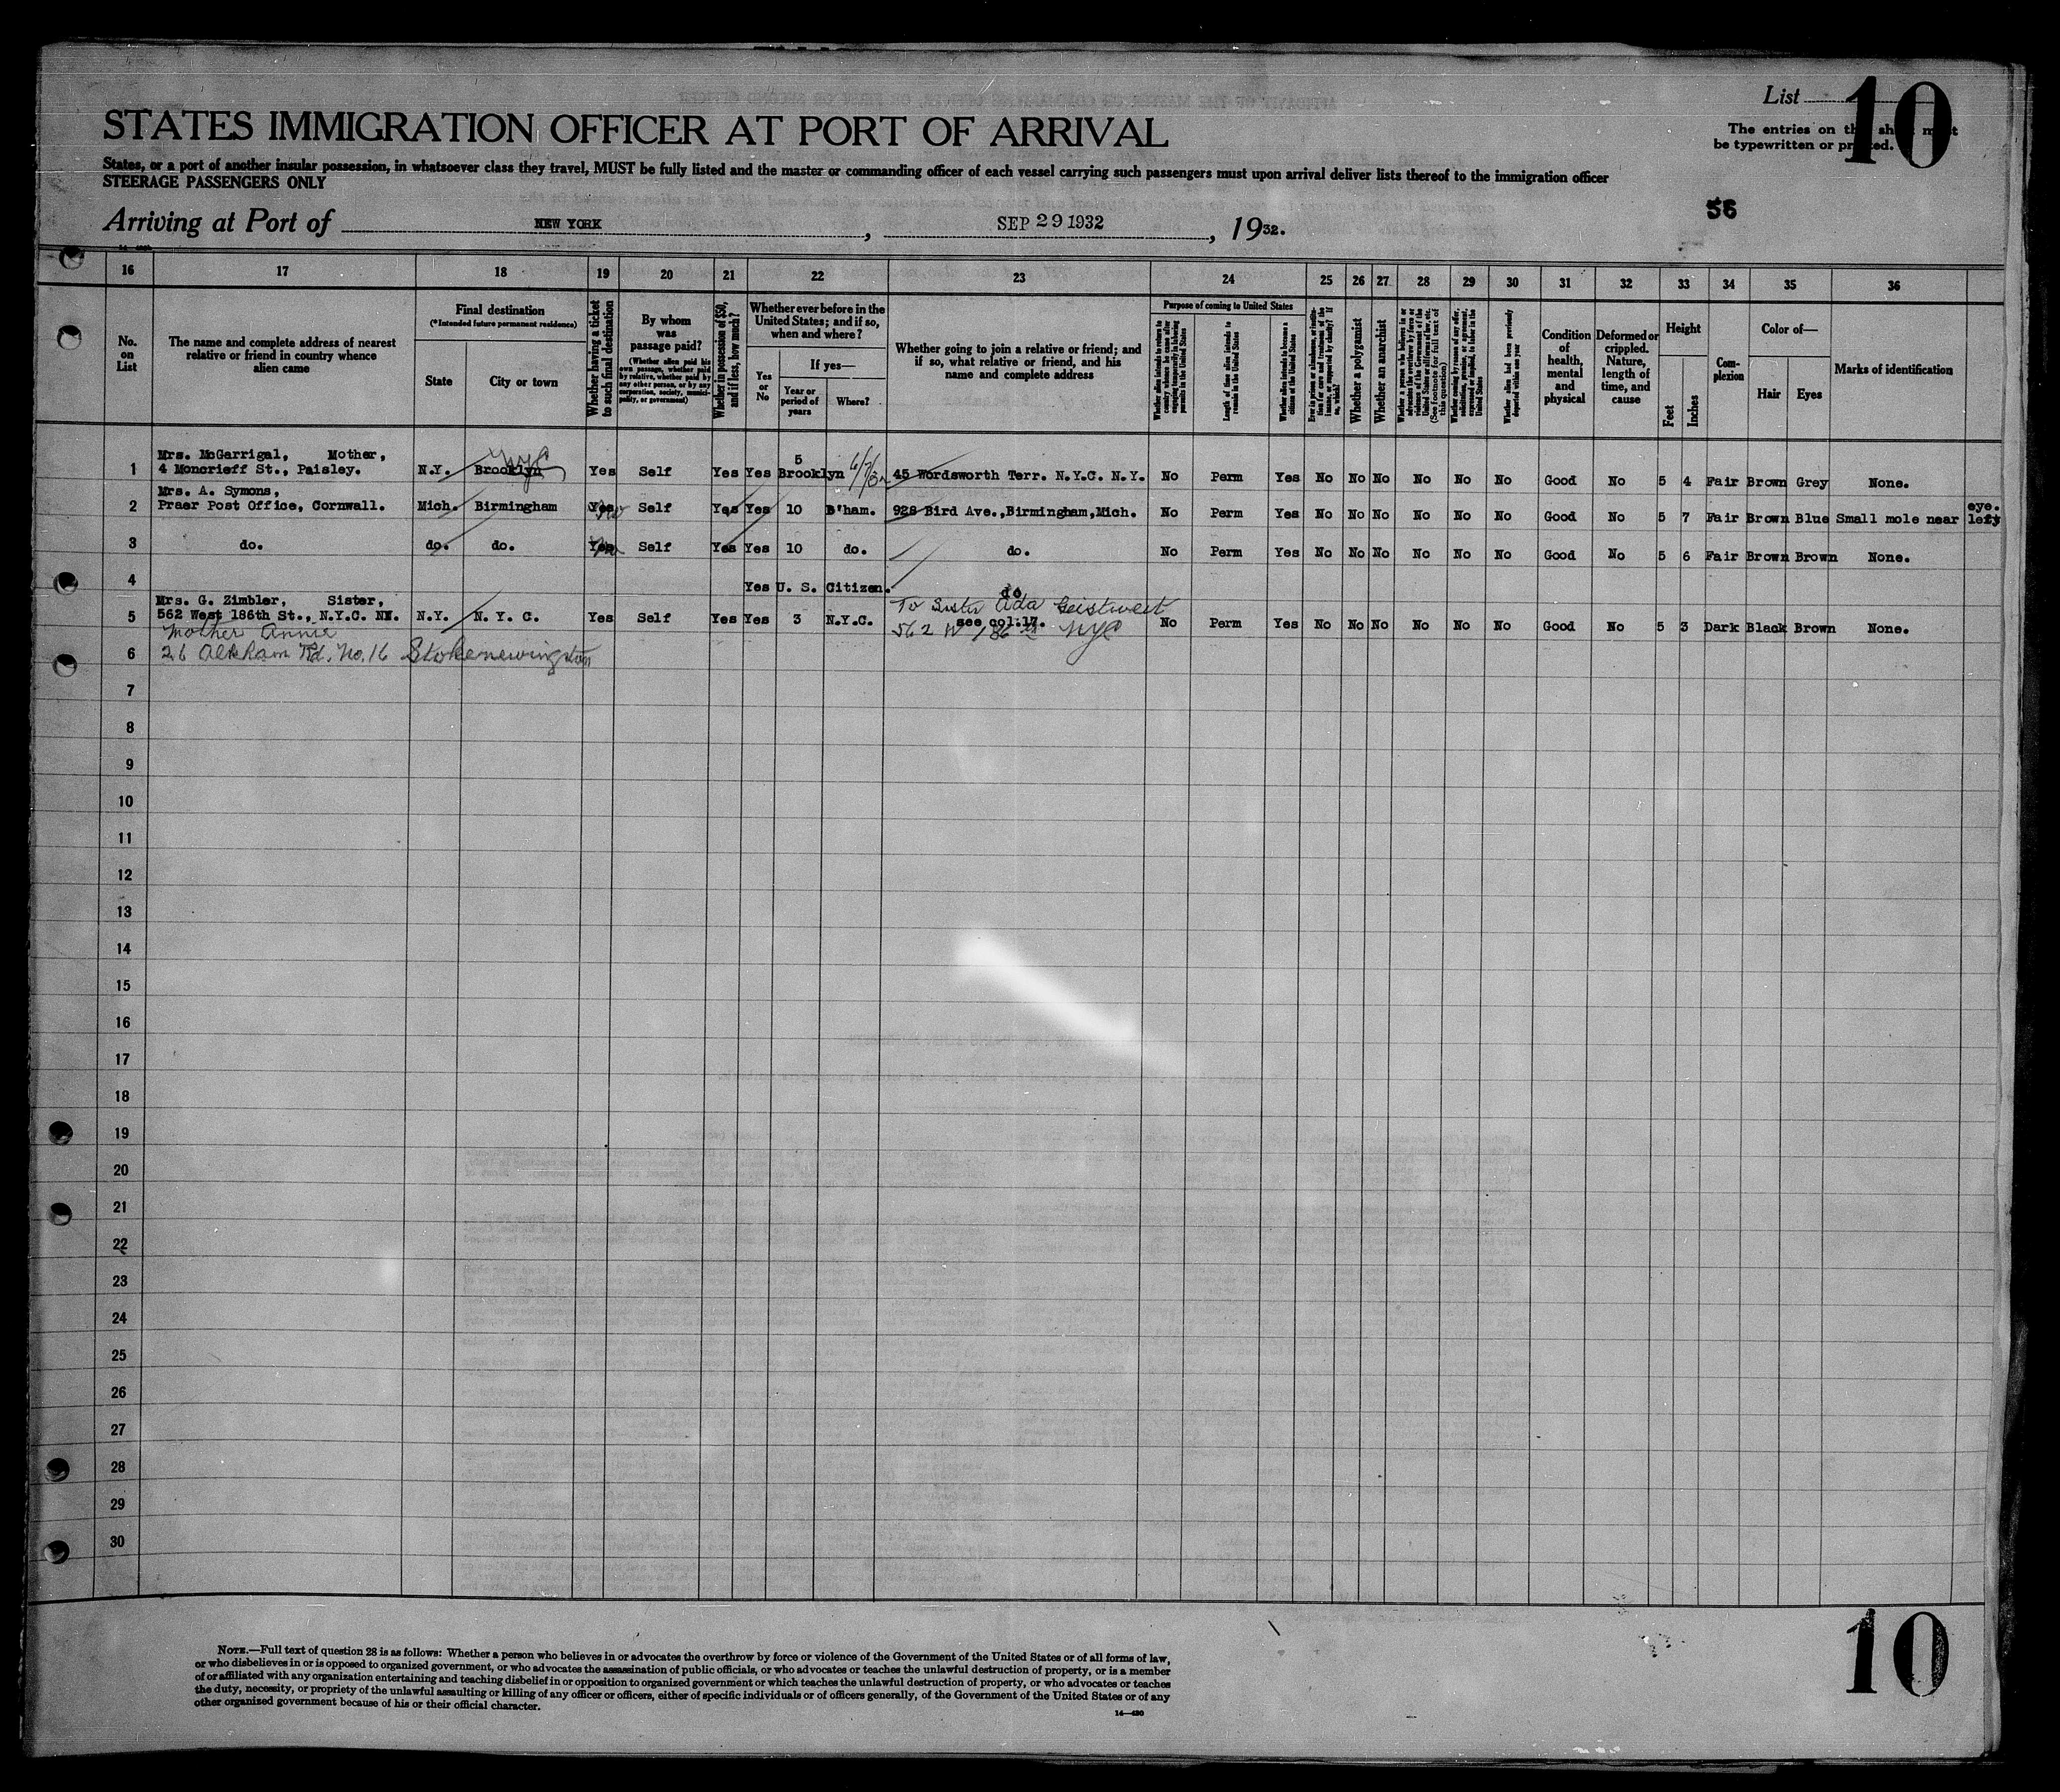 List 10
STATES IMMIGRATION OFFICER AT PORT OF ARRIVAL
The entries on this sheet must
be typewritten or printed.
States, or a port of another insular possession, in whatsoever class they travel, MUST be fully listed and the master or commanding officer of each vessel carrying such passengers must upon arrival deliver lists thereof to the immigration officer
STEERAGE PASSENGERS ONLY
56
Arriving at Port of NEW YORK, SEP 29 1932, 1932.
16 17 18 19 20 21 22 23 24 25 26 27 28 29 30 31 32 33 34 35 36
No. on List
The name and complete address of nearest relative or friend in country whence alien came
Final destination
(*Intended future permanent residence)
State
City or town
Whether having a ticket to such final destination
By whom was passage paid?
(Whether alien paid his own passage, whether paid by relative, whether paid by any other person, or by any corporation, society, municipality, or government)
Whether in possession of $50, and if less, how much?
Whether ever before in the United States; and if so, when and where?
Yes or No
If yes—
Year or period of years
Where?
Whether going to join a relative or friend; and if so, what relative or friend, and his name and complete address
Purpose of coming to United States
Length of time alien intends to remain in the United States
Whether alien intends to become a citizen of the United States
Whether a polygamist
Whether an anarchist
Condition of health, mental and physical
Deformed or crippled. Nature, length of time, and cause
Height
Feet
Inches
Complexion
Color of—
Hair
Eyes
Marks of identification
1 Mrs. McGarrigal, Mother,
4 Moncrieff St., Paisley. N.Y. Brooklyn NYC Yes Self Yes Yes 5 Brooklyn 45 Wordsworth Terr. N.Y.C. N.Y. No Perm Yes No No No No No No Good No 5 4 Fair Brown Grey None.
2 Mrs. A. Symons,
Praer Post Office, Cornwall. Mich. Birmingham Yes Self Yes Yes 10 B'ham. 928 Bird Ave.,Birmingham,Mich. No Perm Yes No No No No No No Good No 5 7 Fair Brown Blue Small mole near left eye.
3 do. do. do. Yes Self Yes Yes 10 do. do. No Perm Yes No No No No No No Good No 5 6 Fair Brown Brown None.
4 Yes U. S. Citizen. do.
5 Mrs. G. Zimbler, Sister,
562 West 186th St., N.Y.C. NY. N.Y. N. Y. C. Yes Self Yes Yes 3 N.Y.C. see col.17. No Perm Yes No No No No No No Good No 5 3 Dark Black Brown None.
To Sister Ada
562 W 186 St NYC
Mother Annie
6 26 Rd. No. 16 Stokenewington
7
8
9
10
11
12
13
14
15
16
17
18
19
20
21
22
23
24
25
26
27
28
29
30
NOTE.—Full text of question 28 is as follows: Whether a person who believes in or advocates the overthrow by force or violence of the Government of the United States or of all forms of law,
or who disbelieves in or is opposed to organized government, or who advocates the assassination of public officials, or who advocates or teaches the unlawful destruction of property, or is a member
of or affiliated with any organization entertaining and teaching disbelief in or opposition to organized government or which teaches the unlawful destruction of property, or who advocates or teaches
the duty, necessity, or propriety of the unlawful assaulting or killing of any officer or officers, either of specific individuals or of officers generally, of the Government of the United States or of any
other organized government because of his or their official character.
14—430
10